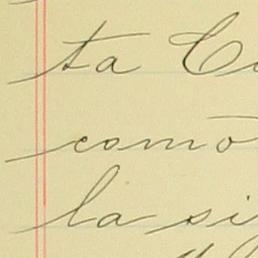 ta
como
la si